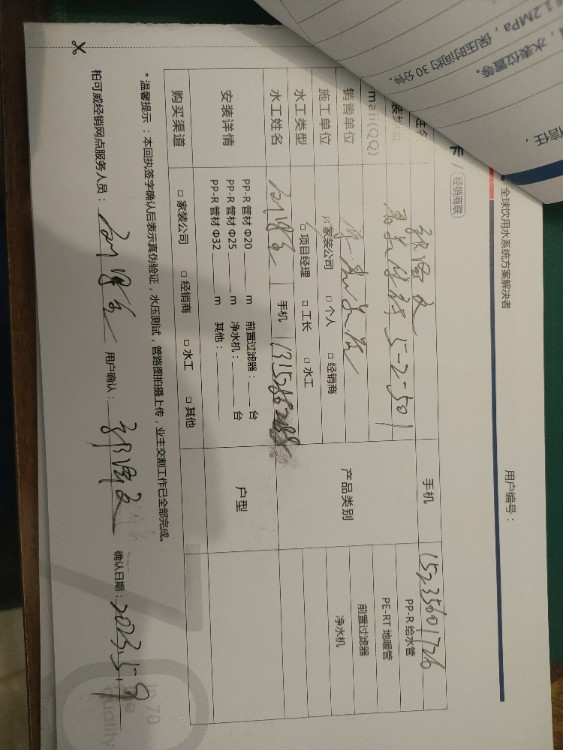 1.2MPa，保压时间约30分钟。
水表位置等。
信任，
全球饮用水系统方案解决者
用户编号：
经销商联
5-2-501
手机 15235601726
mail(QQ)
销售单位
产品类别
PP-R 给水管
PE-RT 地暖管
前置过滤器
净水机
施工单位 家装公司 □ 个人 □ 经销商
水工类型 □ 项目经理 □ 工长 □ 水工
水工姓名 手机
安装详情
PP-R 管材 Φ20 m 前置过滤器： 台
PP-R 管材 Φ25 m 净水机： 台
PP-R 管材 Φ32 m 其他：
户型
购买渠道 □ 家装公司 □ 经销商 □ 水工 □ 其他
*温馨提示：本回执签字确认后表示真伪验证，水压测试，管路图拍摄上传，业主交割工作已全部完成。
柏可威经销网点服务人员： 用户确认： 确认日期：2023.5.9